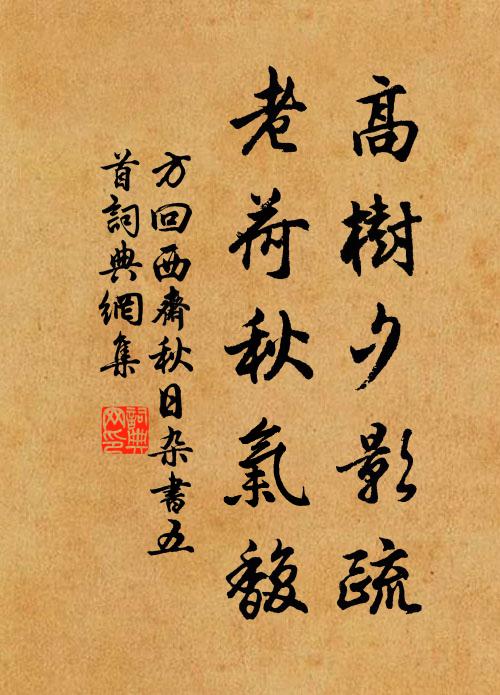 高樹夕影疏
老荷秋氣馥
方回西齋秋日杂書五
首詞典網集
詞典
网印